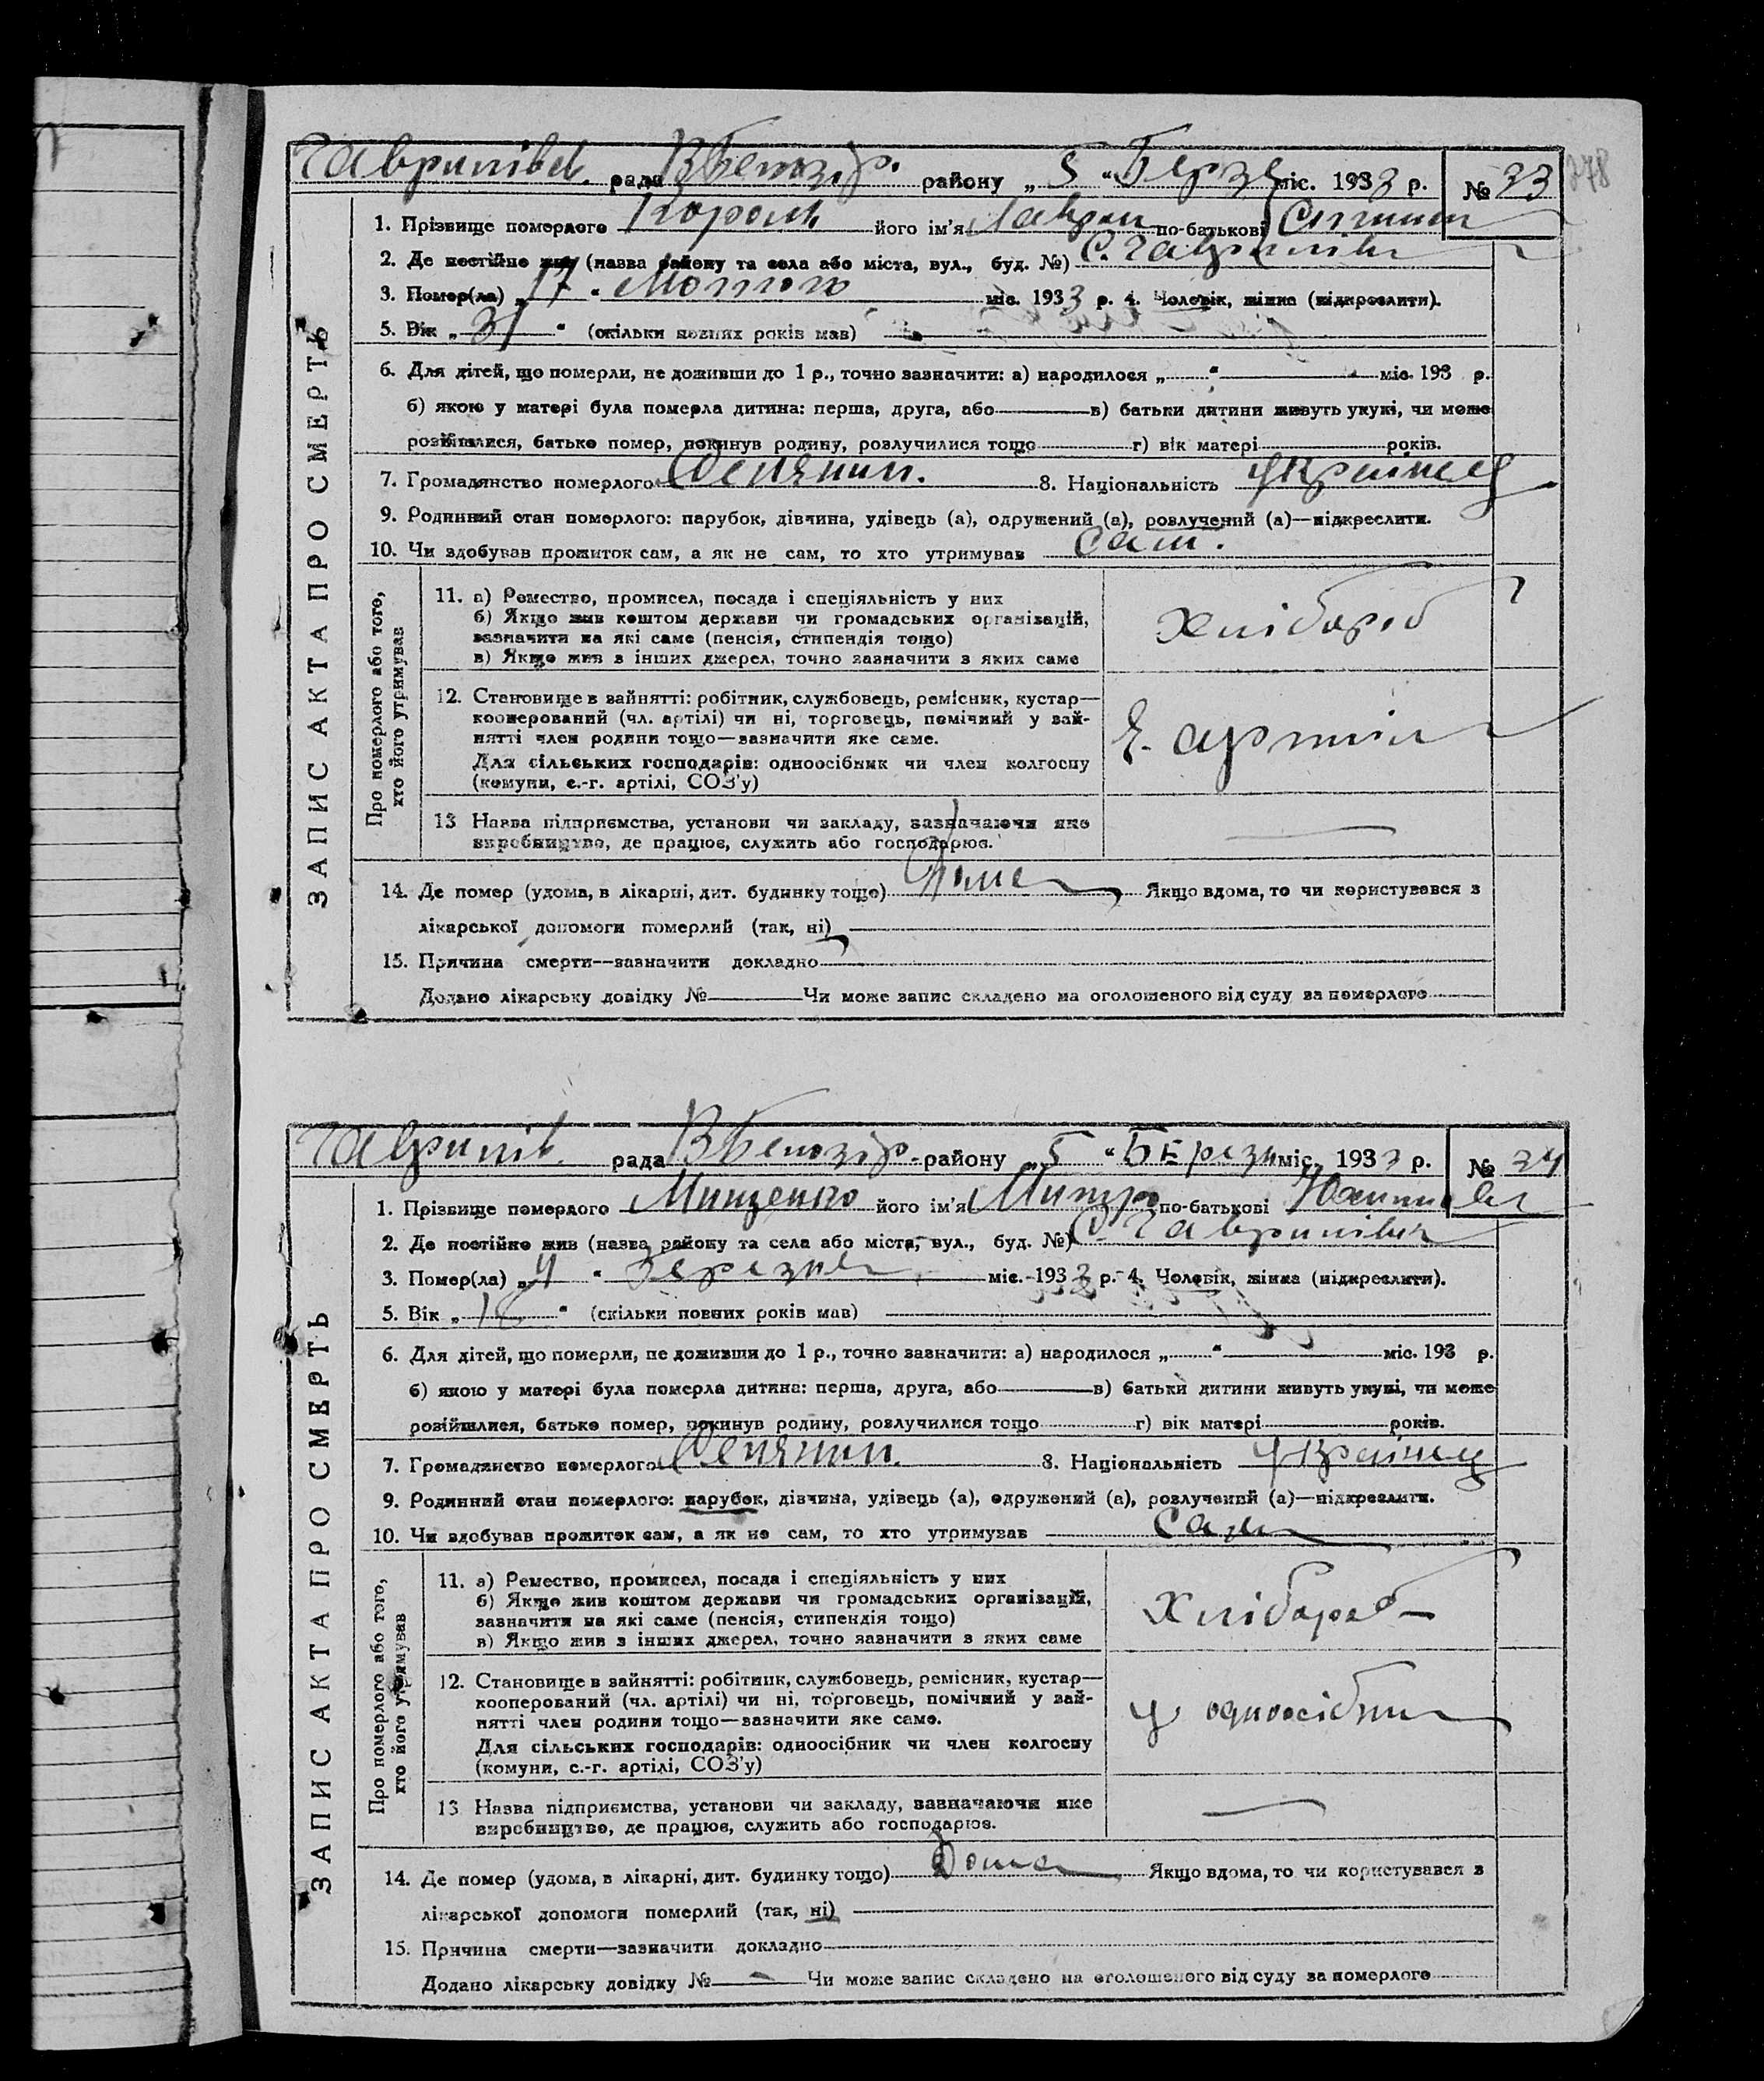 278
Гаврилівс. рада В Белозір. району „5 “ Березня міс. 1933 р. № 33
1. Прізвище померлого Король його ім'я Лаврін по-батькові
2. Де постійно жив (назва району та села або міста, вул., буд. №) с. Гаврилівка
3. Помер(ла) „17 “ Лютого міс. 1933 р. 4. Чоловік, жінка (підкреслити).
5. Вік „31“ (скільки повних років мав)
6. Для дітей, що померли, не доживши до 1 р., точно зазначити: а) народилося „ “ міс. 193 р.
б) якою у матері була померла дитина: перша, друга, або в) батьки дитини живуть укупі, чи може
розійшлися, батько помер, покинув родину, розлучилися тощо г) вік матері років.
7. Громадянство померлого Селянин. 8. Національність Українець
9. Родинний стан померлого: парубок, дівчина, удівець (а), одружений (а), розлучений (а)—підкреслити.
10. Чи здобував прожиток сам, а як не сам, то хто утримував Сам.
ЗАПИС АКТА ПРО СМЕРТЬ
Про померлого або того,
хто його утримував
11. а) Ремество, промисел, посада і спеціяльність у них
б) Якщо жив коштом держави чи громадських організацій,
зазначити на які саме (пенсія, стипендія тощо)
в) Якщо жив з інших джерел, точно зазначити з яких саме
Хлібороб
12. Становище в зайнятті: робітник, службовець, ремісник, кустар—
кооперований (чл. артілі) чи ні, торговець, помічний у зай-
нятті член родини тощо—зазначити яке саме.
Для сільських господарів: одноосібник чи член колгоспу
(комуни, с.-г. артілі, СОЗ'у)
артіли
13 Назва підприємства, установи чи закладу, зазначаючи яке
виробництво, де працює, служить або господарює.
14. Де помер (удома, в лікарні, дит. будинку тощо) Дома Якщо вдома, то чи користувався з
лікарської допомоги померлий (так, ні)
15. Причина смерти—зазначити докладно
Додано лікарську довідку № Чи може запис складено на оголошеного від суду за померлого
Гаврилів. рада В Белозір. району „5 “ Березня міс. 1933 р. № 34
1. Прізвище померлого Мищенко його ім'я Митро по-батькові
2. Де постійно жив (назва району та села або міста, вул., буд. №) с. Гаврилівка
3. Помер(ла) „4 “ Березня міс. 1933 р. 4. Чоловік, жінка (підкреслити).
5. Вік „18“ (скільки повних років мав)
6. Для дітей, що померли, не доживши до 1 р., точно зазначити: а) народилося „ “ міс. 193 р.
б) якою у матері була померла дитина: перша, друга, або в) батьки дитини живуть укупі, чи може
розійшлися, батько помер, покинув родину, розлучилися тощо г) вік матері років.
7. Громадянство померлого Селянин. 8. Національність Українець
9. Родинний стан померлого: парубок, дівчина, удівець (а), одружений (а), розлучений (а)—підкреслити.
10. Чи здобував прожиток сам, а як не сам, то хто утримував Сам
ЗАПИС АКТА ПРО СМЕРТЬ
Про померлого або того,
хто його утримував
11. а) Ремество, промисел, посада і спеціяльність у них
б) Якщо жив коштом держави чи громадських організацій,
зазначити на які саме (пенсія, стипендія тощо)
в) Якщо жив з інших джерел, точно зазначити з яких саме
Хлібороб
12. Становище в зайнятті: робітник, службовець, ремісник, кустар—
кооперований (чл. артілі) чи ні, торговець, помічний у зай-
нятті член родини тощо—зазначити яке саме.
Для сільських господарів: одноосібник чи член колгоспу
(комуни, с.-г. артілі, СОЗ'у)
одноосібник
13 Назва підприємства, установи чи закладу, зазначаючи яке
виробництво, де працює, служить або господарює.
14. Де помер (удома, в лікарні, дит. будинку тощо) Дома Якщо вдома, то чи користувався з
лікарської допомоги померлий (так, ні)
15. Причина смерти—зазначити докладно
Додано лікарську довідку № Чи може запис складено на оголошеного від суду за померлого